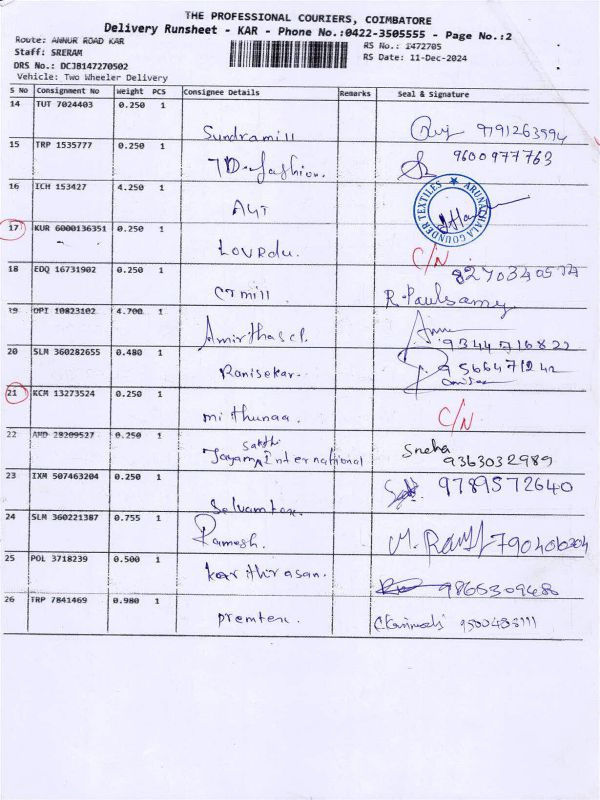 THE PROFESSIONAL COURIERS, COIMBATORE
Delivery Runsheet - KAR - Phone No.:0422-3505555 - Page No.:2
Route: ANNUR ROAD KAR
RS No.: 1472705
Staff: SRERAM
RS Date: 11-Dec-2024
DRS No.: DCJB147270502
Vehicle: Two Wheeler Delivery
S No Consignment No Weight PCS Consignee Details Remarks Seal & Signature
14 TUT 7024403 0.250 1
Sundramill 9791263994
15 TRP 1535777 0.250 1
TD-fashion. 9600977763
16 ICH 153427 4.250 1
AGT ARUNACHALA GOUNDER TEXTILES
17 KUR 6000136351 0.250 1
Lourdu. C/N
18 EDQ 16731902 0.250 1
CTmill 8270340574
R. Paulsamy
19 OPI 10823102 4.700 1
Amirthascl. 9344716822
20 SLM 360282655 0.480 1
Ranisekar. 9566471242
21 KCM 13273524 0.250 1
mithunaa. C/N
22 AMD 28209527 0.250 1
Sakthi Sneha
Jayam International 9363032989
23 IXM 507463204 0.250 1
Selvamtex. 9789572640
24 SLM 360221387 0.755 1
Ramesh.
25 POL 3718239 0.500 1
karthirasan. 9865309488
26 TRP 7841469 0.980 1
premtex.